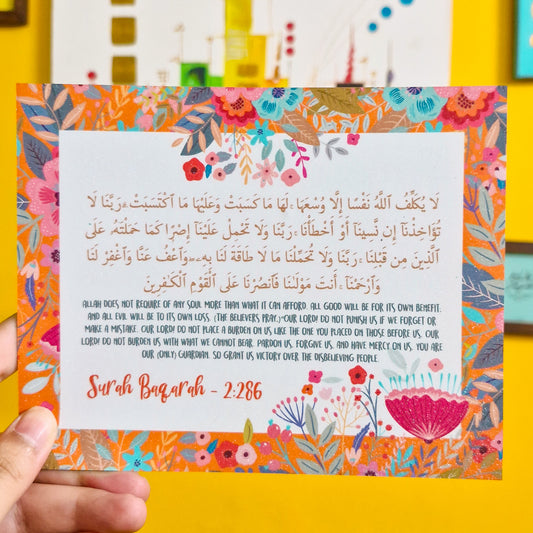 لَا يُكَلِّفُ ٱللَّهُ نَفْسًا إِلَّا وُسْعَهَا ۚ لَهَا مَا كَسَبَتْ وَعَلَيْهَا مَا ٱكْتَسَبَتْ ۗ رَبَّنَا لَا
تُؤَاخِذْنَآ إِن نَّسِينَآ أَوْ أَخْطَأْنَا ۚ رَبَّنَا وَلَا تَحْمِلْ عَلَيْنَآ إِصْرًا كَمَا حَمَلْتَهُۥ عَلَى
ٱلَّذِينَ مِن قَبْلِنَا ۚ رَبَّنَا وَلَا تُحَمِّلْنَا مَا لَا طَاقَةَ لَنَا بِهِۦ ۖ وَٱعْفُ عَنَّا وَٱغْفِرْ لَنَا
وَٱرْحَمْنَآ ۚ أَنتَ مَوْلَىٰنَا فَٱنصُرْنَا عَلَى ٱلْقَوْمِ ٱلْكَـٰفِرِينَ
ALLAH DOES NOT REQUIRE OF ANY SOUL MORE THAN WHAT IT CAN AFFORD. ALL GOOD WILL BE FOR ITS OWN BENEFIT,
AND ALL EVIL WILL BE TO ITS OWN LOSS. (THE BELIEVERS PRAY,) "OUR LORD! DO NOT PUNISH US IF WE FORGET OR
MAKE A MISTAKE. OUR LORD! DO NOT PLACE A BURDEN ON US LIKE THE ONE YOU PLACED ON THOSE BEFORE US. OUR
LORD! DO NOT BURDEN US WITH WHAT WE CANNOT BEAR. PARDON US, FORGIVE US, AND HAVE MERCY ON US. YOU ARE
OUR (ONLY) GUARDIAN. SO GRANT US VICTORY OVER THE DISBELIEVING PEOPLE.
Surah Baqarah - 2:286